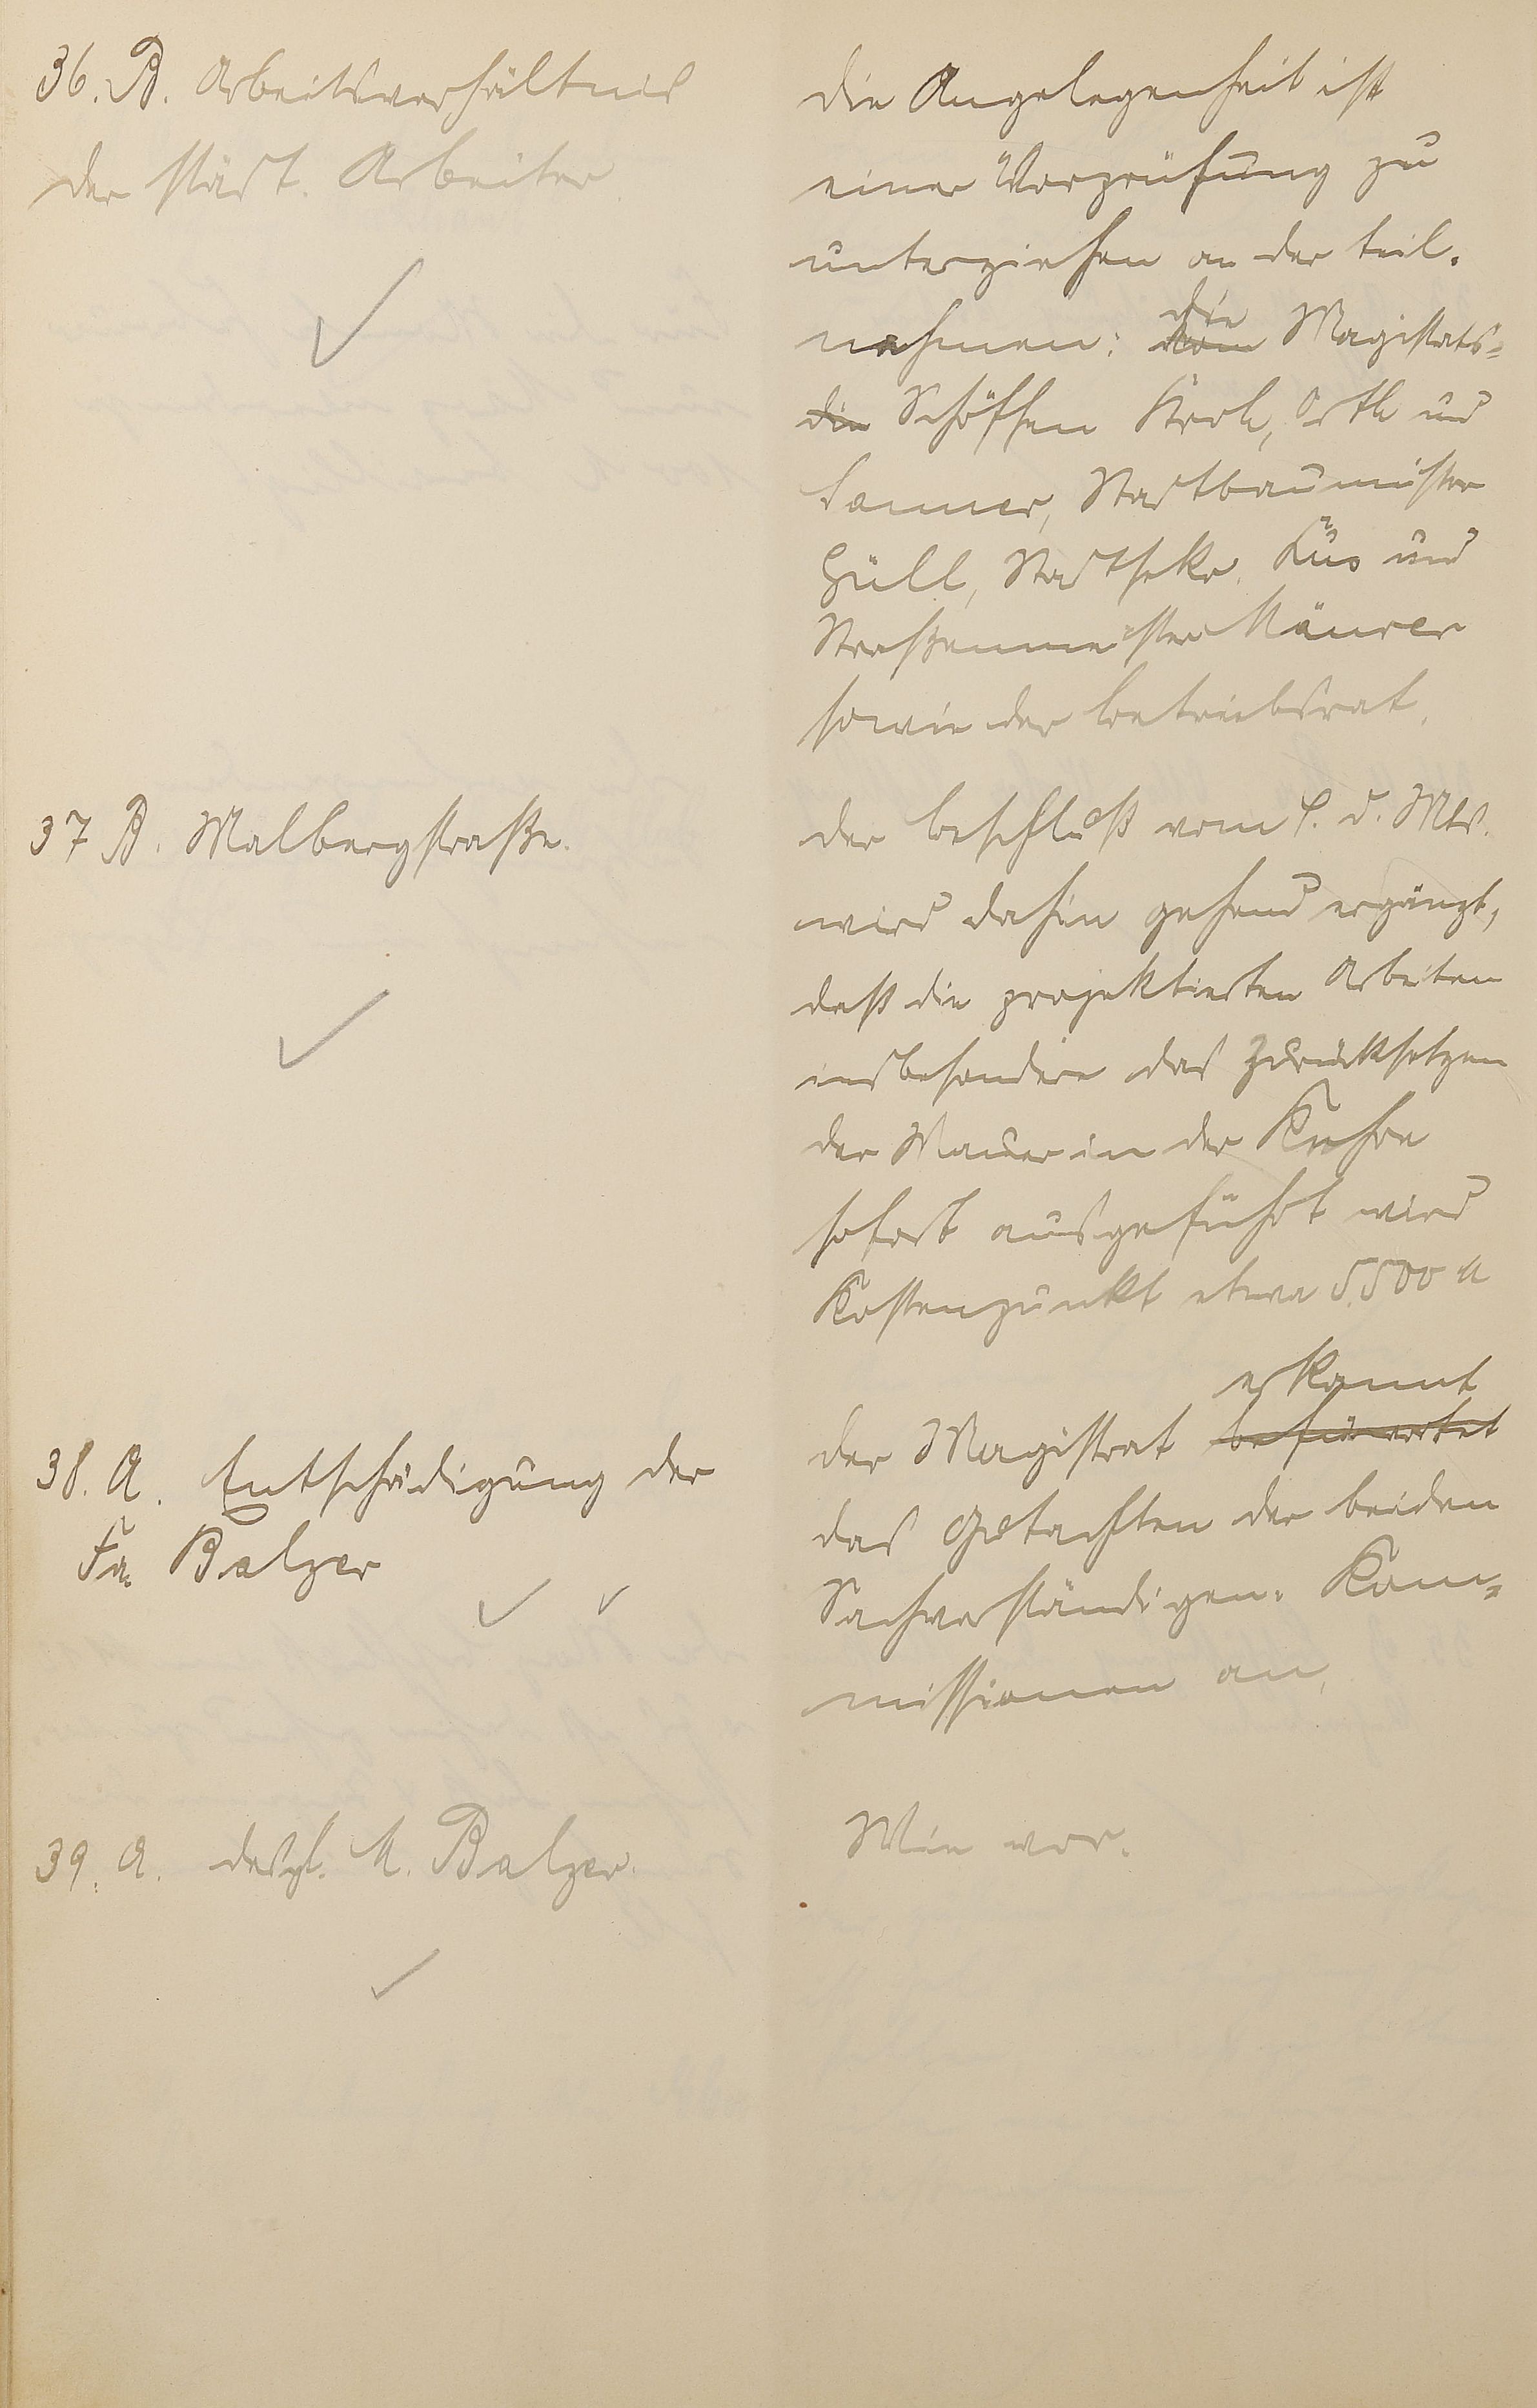 36. B. Arbeitsverhältnis
der städt. Arbeiter.
die Angelegenheit ist
einer Vorprüfung zu
unterziehen an der teil-
nehmen: die Magistats-
die Schöffen Kroh, Orth und
Sommer, Stadtbaumeister
Hüll, Stadtsekr. und
Straßenmeister Mäurer
sowie der Betriebsrat.
37 B. Malbergstraße.
der Beschluß vom d. Mts.
wird dahin gehend ergänzt,
daß die projektierten Arbeiten
insbesondere das Zurücksetzen
der Mauer in der Kehre
sofort ausgeführt wird
Kostenpunkt etwa 5.500 M
38. A. Entschädigung der
Fa. Balzer
erkannt
der Magistrat befürwortet
das Gutachten der beiden
Sachverständigen-Kom-
missionen an,
39. A. desgl. M. Balzer.
Wie vor.